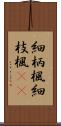 細柄楓細
枝楓